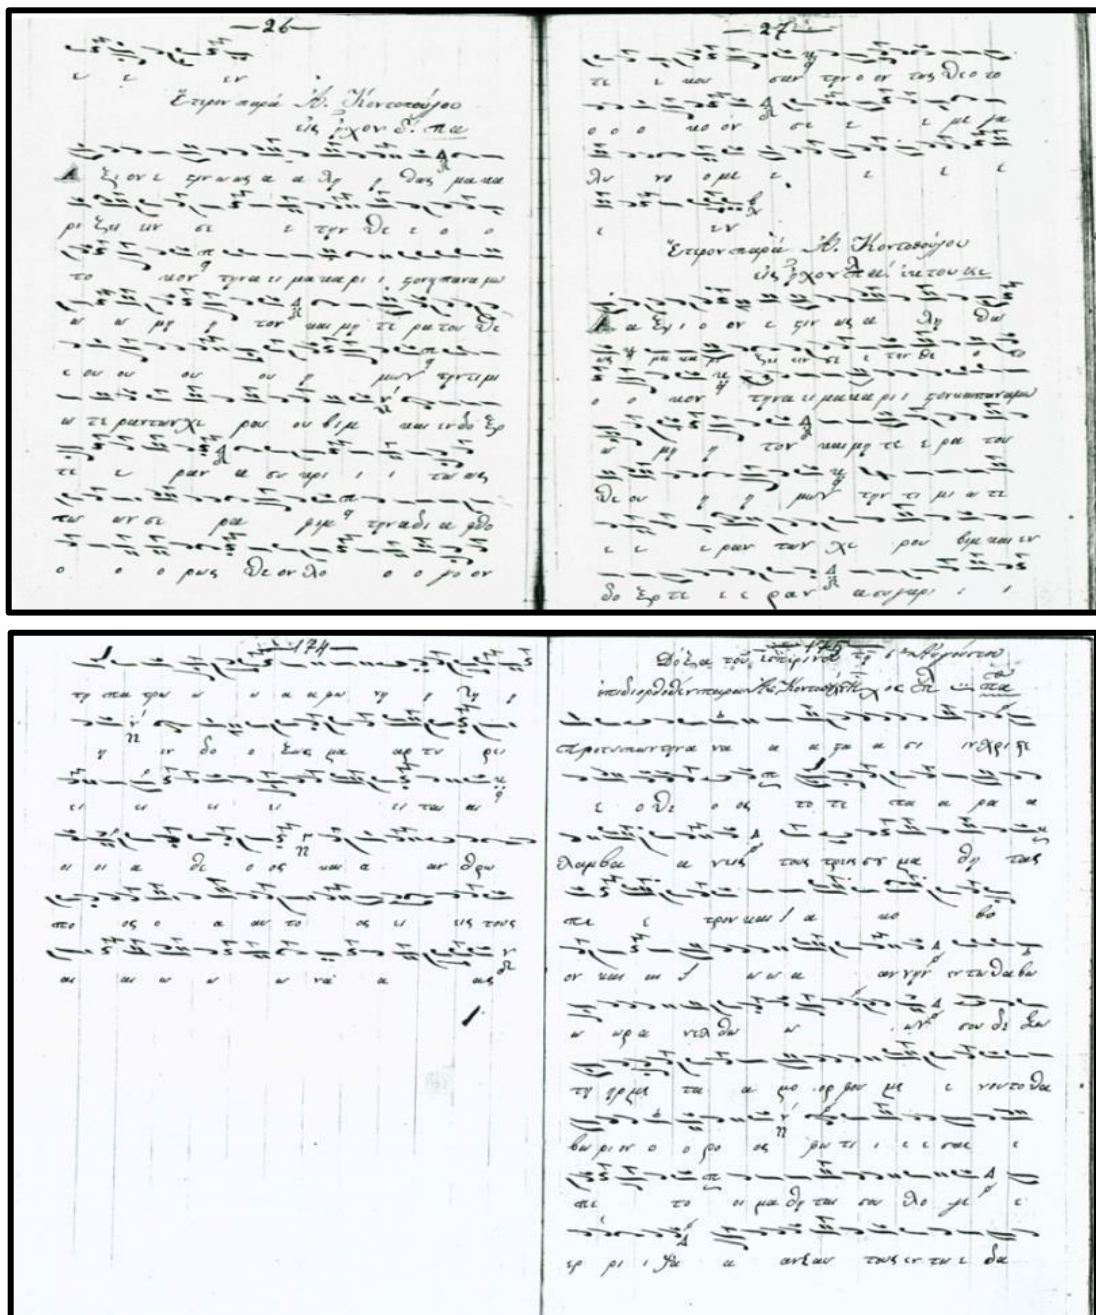 —26—
ε ε εν
Ἕτερον παρὰ Α. Κοντοπούλου
εἰς ἦχον δ. πα
Α ξι ον ε στιν ως α α λη η θως μα κα
ρι ζειν σε ε την Θε ε ο ο
το κον την α ει μα κα ρι ι στον κ παν α μω
ω ω μη η τον και μη τε ρα του Θε
ε ου ου ου ου η μων την τι μι
ω τε ραν των Χε ρου ου βιμ και εν δο ξο
τε ε ραν α συ κρι ι ι τως
των ων σε ρα φιμ την α δι α φθο
ο ο ο ρως Θε ον λο ο ο γο ον
—27—
τε ε κου σαν την ο ον τως Θεο το
ο ο ο κο ον σε ε ε με γα
λυ νο ο με ε ε ε ε
ε εν
Ἕτερον παρὰ Α. Κοντοπούλου
εἰς ἦχον πλ. α. ἐκ του κε
Α α ξι ο ον ε στιν ως α λη θω
ως μα κα ρι ζειν σε ε την Θε ο το
ο ο κον την α ει μα κα ρι ι στον κ παν α μω
ω μη η τον και μη τε ε ρα του
Θε ου η η μων την τι μι ω τε
ε ε ε ραν των Χε ρου βιμ και εν
δο ξο τε ε ε ραν α συ γκρι ι ι
—174—
τη πα τρω ω ω α φω νη η
η εν δο ο ξως μα αρ τυ ρει
ει ει ει ει ει ται αι
οι οι α θε ο ος και α αν θρω
πο ος ο α αυ το ος ει εις τους
αι αι ω ω ω να α ας
—175—
Δόξα τοῦ ἑσπερινοῦ τῇ Αὐγούστου
πα
Προ τυ πων την α να α α στα α σι ιν Χρι στε
ε ο Θε ο ος το τε πα α ρα α
λαμβα α νεις τους τρεις σου μα θη τας
Πε ε τρον και Ι α κω βο
ον και Ι ω ω α αν νην εν τω Θα βω
ω ωρ α νελ θω ω ων σου δε Σω
τηρ με τα α μο ορ φου με ε νου το Θα
βω ρι ον ο ο ρο ος φω τι ι ε ε σκε ε
πε το οι μα θη ται σου Λο γε ε
ερ ρι ι ψα α αν εαυ τους εν τω ε δα